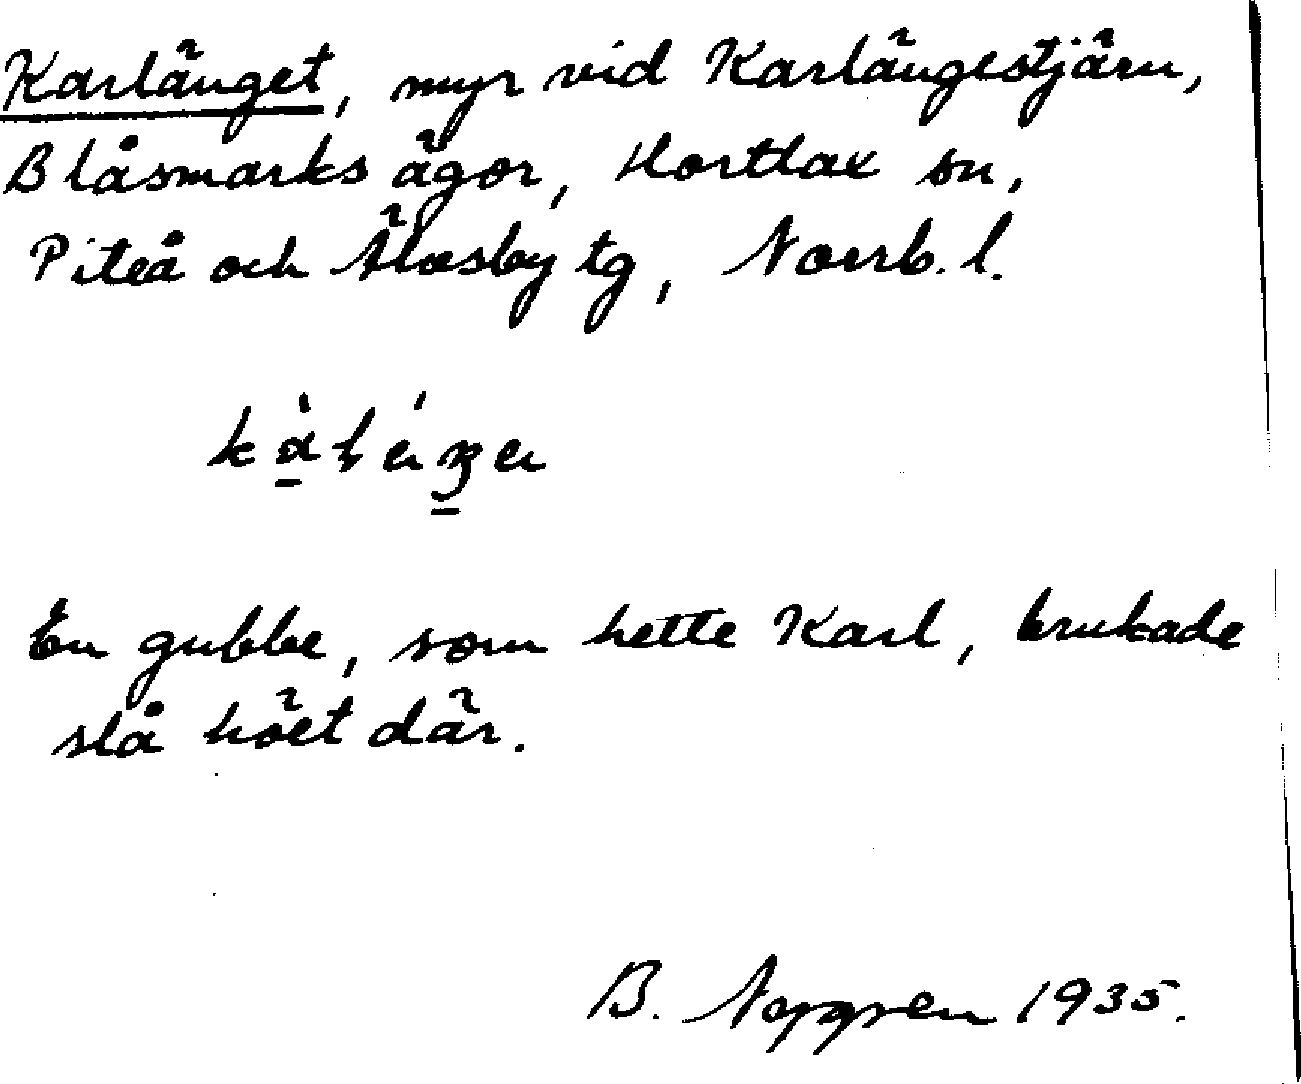 Karlänget, myr vid Karlängestjärn,
Blåsmarks ägor, Hortlax sn,
Piteå och Älvsby tg, Norrb. l.
En gubbe, som hette Karl, brukade
slå höet där.
B. 1935.